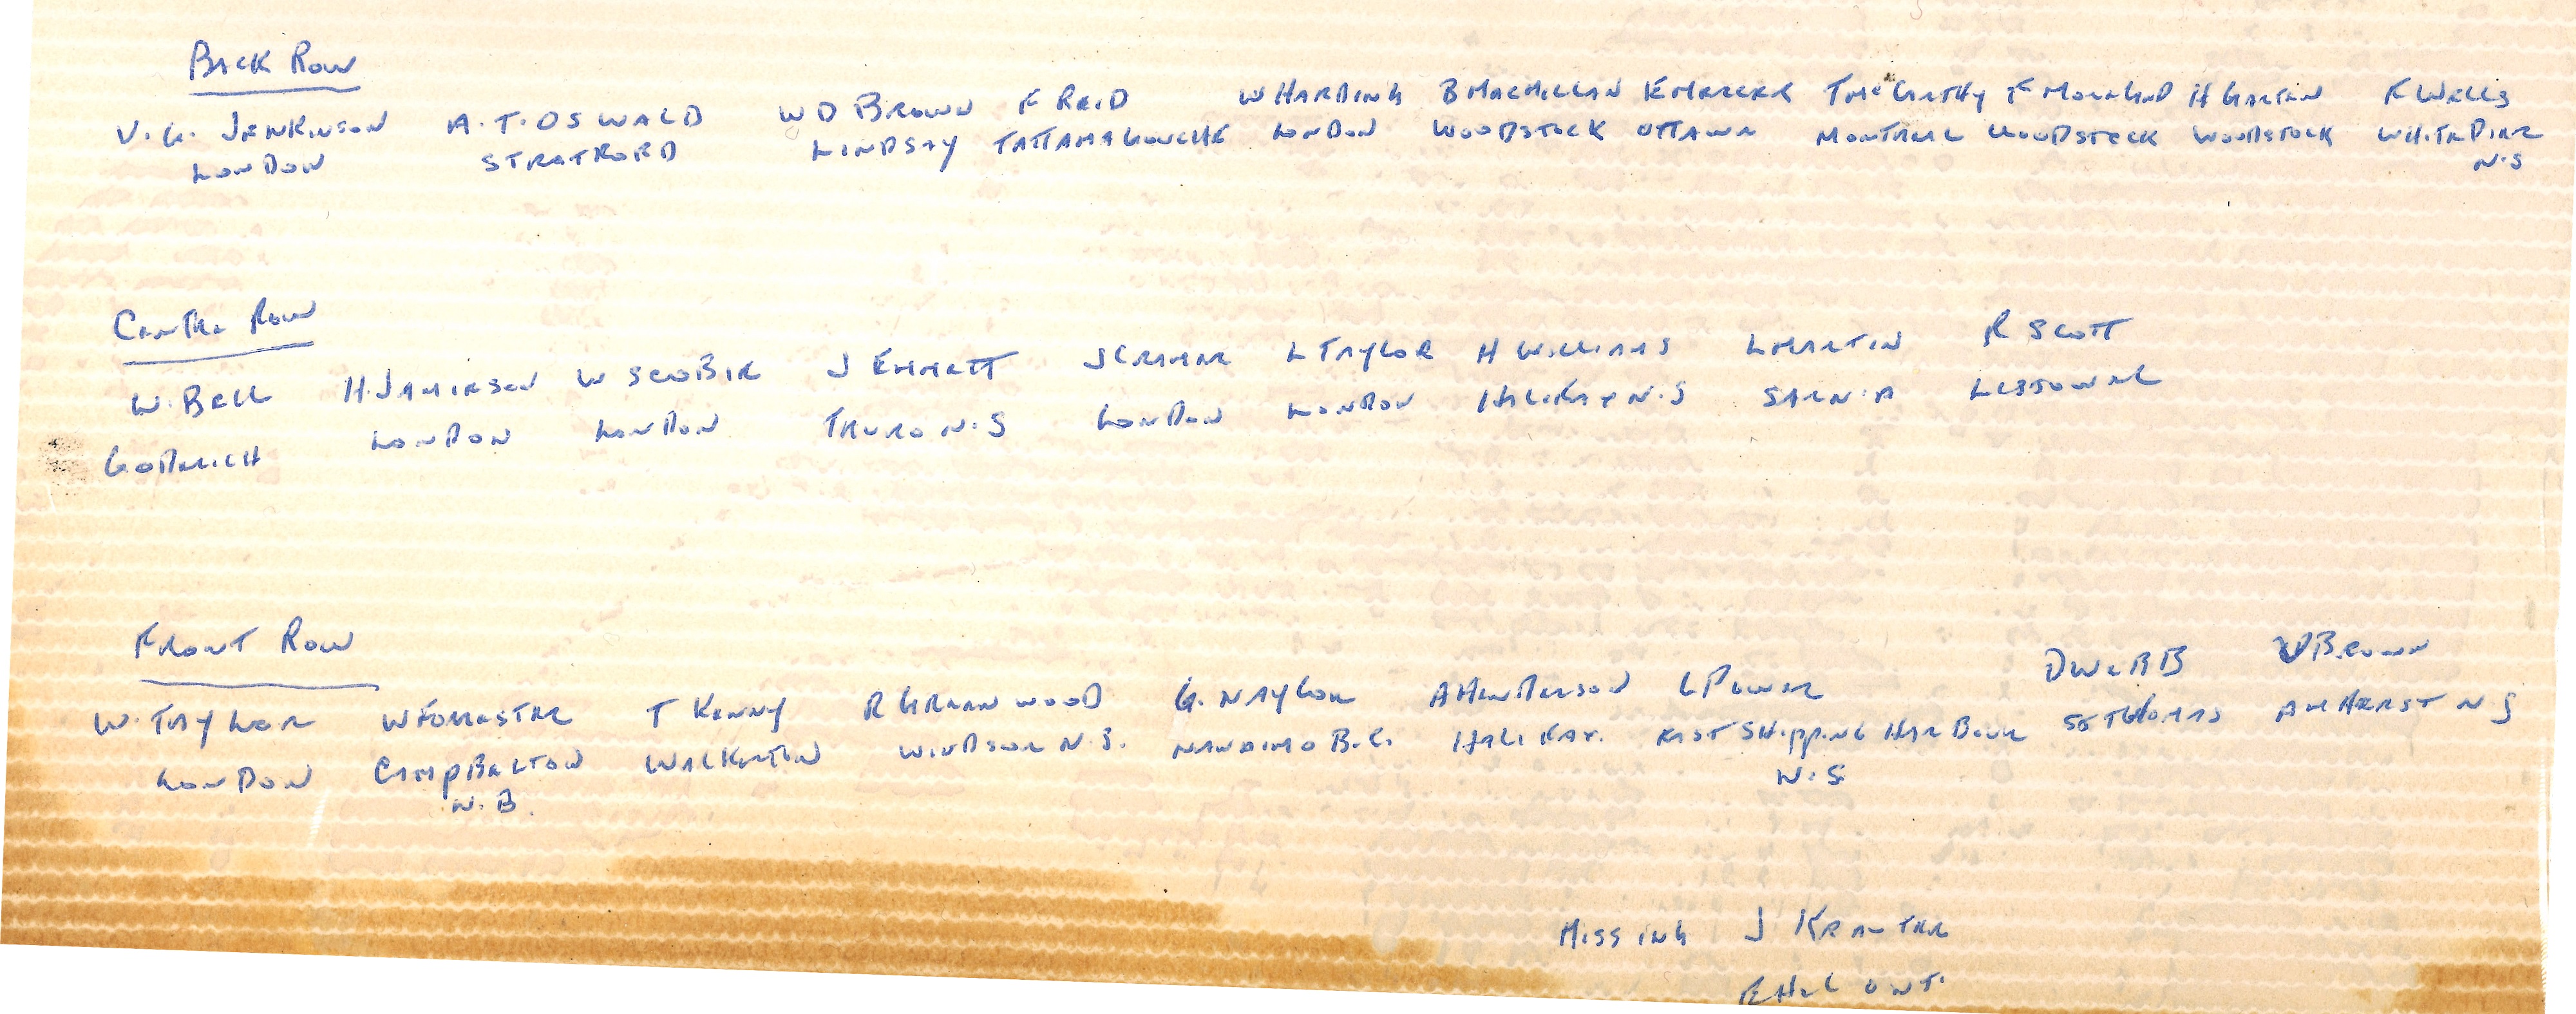 BACK ROW
V. G. JENKINSON A. T. OSWALD W D BROWN F REID W HARDING B MACMILLAN E MERCER T McCARTHY F MORELAND H GARTEN F WELLS
LONDON STRATFORD LINDSAY TATTAMAGOUCHE LONDON WOODSTOCK OTTAWA MONTREAL WOODSTOCK WOODSTOCK WHITE PIER
N.S
CENTRE ROW
W. BELL H. JAMIESON W SCOBIE J EMMETT J CRAMER L TAYLOR H WILLIAMS L MARTIN R SCOTT
GODERICH LONDON LONDON TRURO N.S LONDON LONDON HALIFAX N.S SARNIA LISTOWEL
FRONT ROW
W. TAYLOR W FORRESTER T KENNY R GREENWOOD G. NAYLOR A HENDERSON L POWER D WEBB V BROWN
LONDON CAMPBELTON WALKERTON WINDSOR N.S. NANAIMO B.C. HALIFAX. EAST SHIPPING HARBOUR ST THOMAS AMHERST N S
N.B. N.S
MISSING J
ONT.